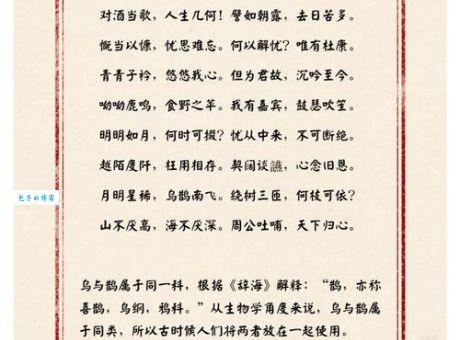 对酒当歌，人生几何！譬如朝露，去日苦多。
慨当以慷，忧思难忘。何以解忧？唯有杜康。
青青子衿，悠悠我心。但为君故，沉吟至今。
呦呦鹿鸣，食野之苹。我有嘉宾，鼓瑟吹笙。
明明如月，何时可掇？忧从中来，不可断绝。
越陌度阡，枉用相存。契阔谈讌，心念旧恩。
月明星稀，乌鹊南飞。绕树三匝，何枝可依？
山不厌高，海不厌深。周公吐哺，天下归心。
包子的博客
乌与鹊属于同一科，根据《辞海》解释：“鹊，亦称
喜鹊，鸟纲，鸦科。”从生物学角度来说，乌与鹊属
于同类，所以古时候人们将两者放在一起使用。